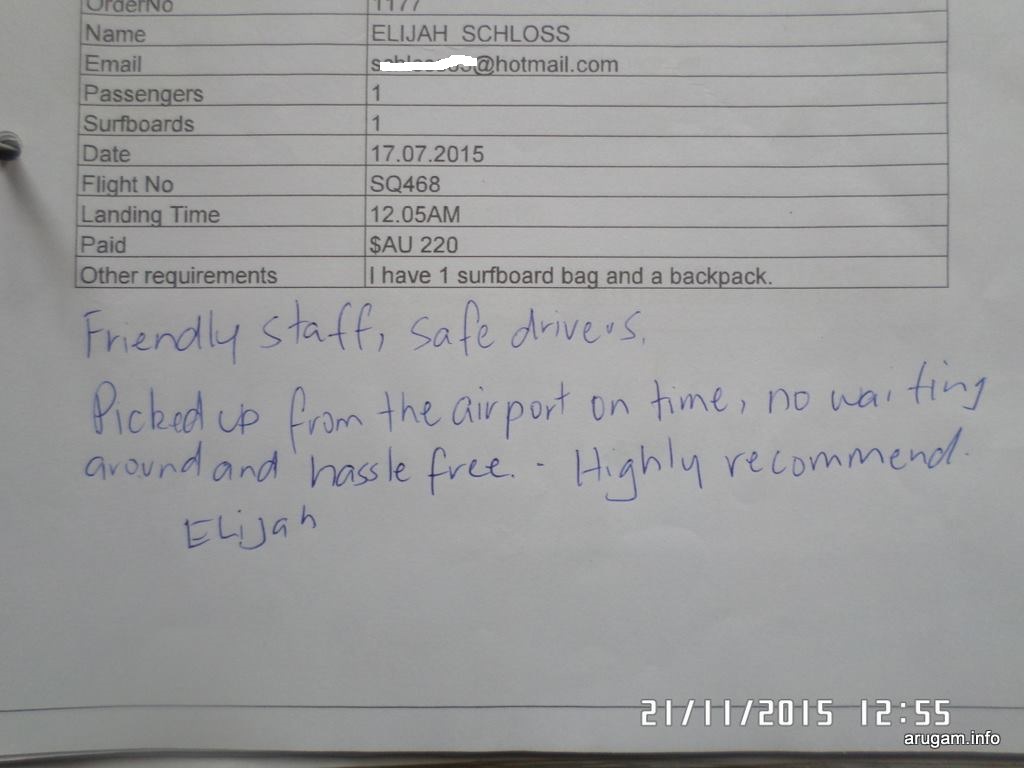 OrderNo 1177
Name ELIJAH SCHLOSS
Email @hotmail.com
Passengers 1
Surfboards 1
Date 17.07.2015
Flight No SQ468
Landing Time 12.05AM
Paid $AU 220
Other requirements I have 1 surfboard bag and a backpack.
Friendly staff, safe drivers.
Picked up from the airport on time, no waiting
around and hassle free. - Highly recommend.
Elijah
21/11/2015 12:55
arugam.info